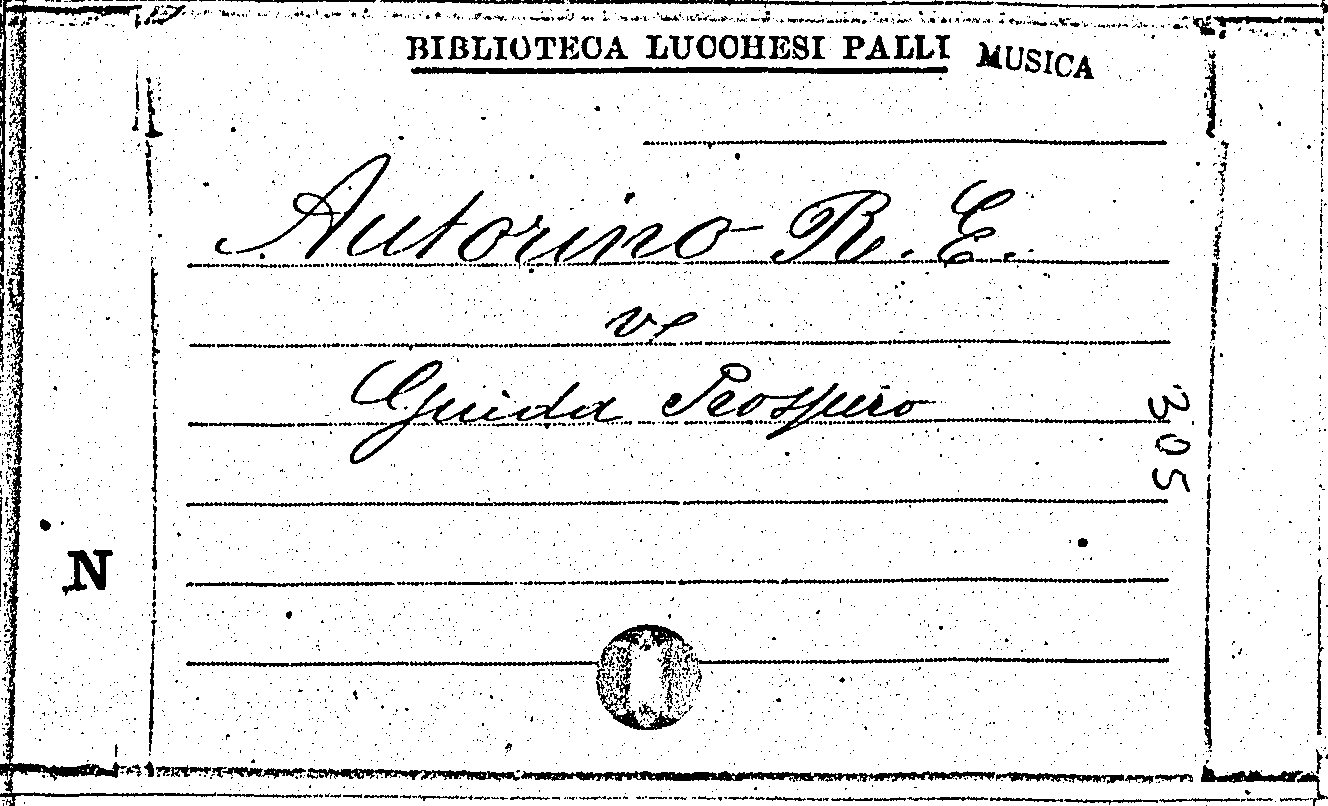 BIBLIOTECA LUCCHESI PALLI MUSICA
Autorino R. E.
ve
Guida Prospero
305
N